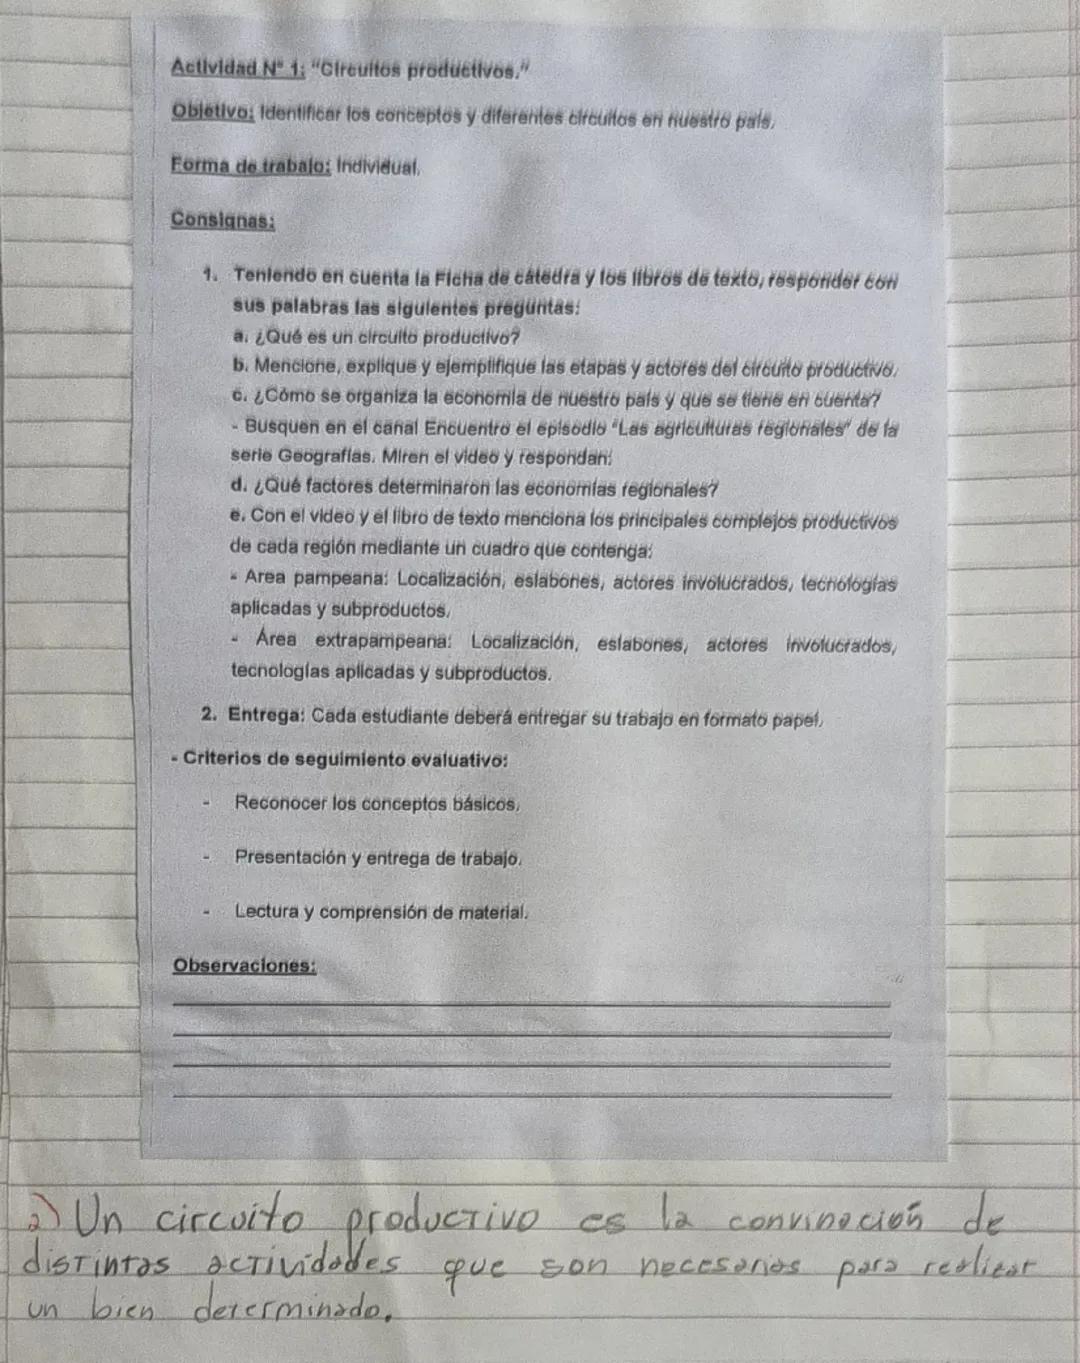 Actividad N° 1: "Circuitos productivos."
Objetivo: Identificar los conceptos y diferentes circuitos en nuestro país.
Forma de trabajo: Individual.
Consignas:
1. Teniendo en cuenta la Ficha de cátedra y los libros de texto, responder con
sus palabras las siguientes preguntas:
a. ¿Qué es un circuito productivo?
b. Mencione, explique y ejemplifique las etapas y actores del circuito productivo.
c. ¿Cómo se organiza la economía de nuestro país y que se tiene en cuenta?
- Busquen en el canal Encuentro el episodio "Las agriculturas regionales" de la
serie Geografías. Miren el video y respondan:
d. ¿Qué factores determinaron las economías regionales?
e. Con el video y el libro de texto menciona los principales complejos productivos
de cada región mediante un cuadro que contenga:
- Area pampeana: Localización, eslabones, actores involucrados, tecnologías
aplicadas y subproductos.
- Área extrapampeana: Localización, eslabones, actores involucrados,
tecnologías aplicadas y subproductos.
2. Entrega: Cada estudiante deberá entregar su trabajo en formato papel.
- Criterios de seguimiento evaluativo:
- Reconocer los conceptos básicos.
- Presentación y entrega de trabajo.
- Lectura y comprensión de material.
Observaciones:
a) Un circuito productivo es la convinación de
distintas actividades que son necesarias para realizar
un bien determinado.